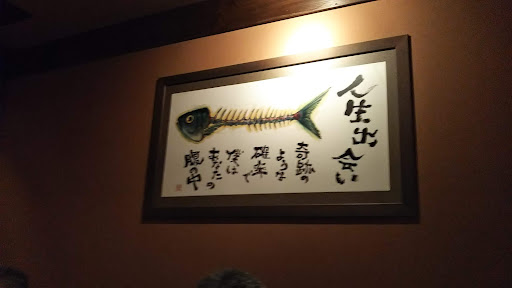 人生出会い
奇跡の
ような
確率で
僕は
あなたの